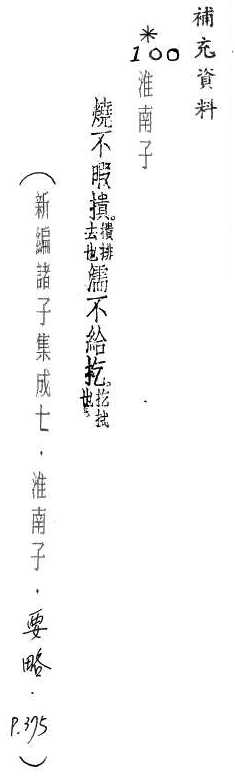 補充資料
*
100 淮南子
燒不暇撌。撌排去也濡不給扢。扢拭也
(新編諸子集成七.淮南子.要略.P.375)